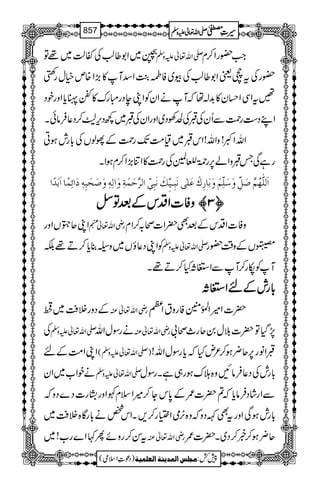 سیرتِ مصطفی صلی اللہ تعالیٰ علیہ وسلم 857
جب حضور اکرم صلی اللہ تعالیٰ علیہ وسلم بچپن میں ابوطالب کی کفالت میں تھے تو
حضور کی یہ چچی یعنی ابوطالب کی بیوی فاطمہ بنت اسد آپ کا بڑا خاص خیال رکھتی
تھیں یہ اسی احسان کا بدلہ تھا کہ آپ نے ان کو اپنی چادر مبارک کا کفن پہنایا اور خود
اپنے دست رحمت سے اُن کی قبر کی لحد کھودی اور ان کی قبر میں کچھ دیر لیٹ کر دعا فرمائی۔
اللہ اکبر! واللہ! اس قبر میں قیامت تک رحمت کے پھولوں کی بارش ہوتی
رہے گی جس قبر والے پر رحمۃ للعالمین کی رحمت کا اتنا بڑا کرم ہوا۔
اَللّٰھُمَّ صَلِّ وَسَلِّمْ وَبَارِکْ عَلٰی نَبِیِّکَ نَبِیِّ الرَّحْمَۃِ وَاٰلِہٖ وَصَحْبِہٖ دَائِمًا اَبَدًا
﴿۳﴾ وفات اقدس کے بعد توسل
وفات اقدس کے بعد بھی حضرات صحابہ کرام رضی اللہ تعالیٰ عنہم اپنی حاجتوں اور
مصیبتوں کے وقت حضور صلی اللہ تعالیٰ علیہ وسلم کو اپنی دعاؤں میں وسیلہ بنایا کرتے تھے بلکہ
آپ کو پکار کر آپ سے استغاثہ کیا کرتے تھے۔
بارش کے لئے استغاثہ
حضرت امیر المؤمنین فاروق اعظم رضی اللہ تعالیٰ عنہ کے دور خلافت میں قحط
پڑ گیا تو حضرت بلال بن حارث صحابی رضی اللہ تعالیٰ عنہ نے رسول اللہ صلی اللہ تعالیٰ علیہ وسلم کی
قبر انور پر حاضر ہو کر عرض کیا کہ یا رسول اللہ! (صلی اللہ تعالیٰ علیہ وسلم) اپنی امت کے لئے
بارش کی دعا فرمائیں وہ ہلاک ہو رہی ہے۔ رسول اللہ صلی اللہ تعالیٰ علیہ وسلم نے خواب میں ان
سے ارشاد فرمایا کہ تم حضرت عمر کے پاس جا کر میرا سلام کہو اور بشارت دے دو کہ
بارش ہوگی اور یہ بھی کہہ دو کہ وہ نرمی اختیار کریں۔ اس شخص نے بارگاہ خلافت میں
حاضر ہو کر خبر کر دی۔ حضرت عمر رضی اللہ تعالیٰ عنہ یہ سن کر روئے پھر کہا اے رب! میں
پیش کش: مجلس المدینۃ العلمیۃ (دعوتِ اسلامی)